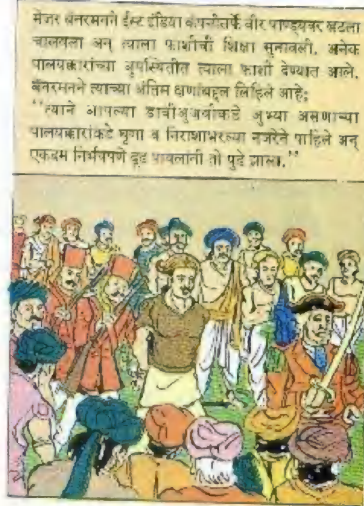 मेजर बॅनरमनने ईस्ट इंडिया कंपनीतर्फे वीर पाण्ड्यवर खटला
चालवला अन् त्याला फाशीची शिक्षा सुनावली. अनेक
पालयक्कारांच्या उपस्थितीत त्याला फाशी देण्यात आले.
बॅनरमनने त्याच्या अंतिम क्षणांबद्दल लिहिले आहे;
"त्याने आपल्या डावीउजवीकडे उभ्या असणाऱ्या
पालयक्कारांकडे घृणा व निराशाभरल्या नजरेने पाहिले अन्
एकदम निर्भयपणे दृढ पावलांनी तो पुढे झाला."